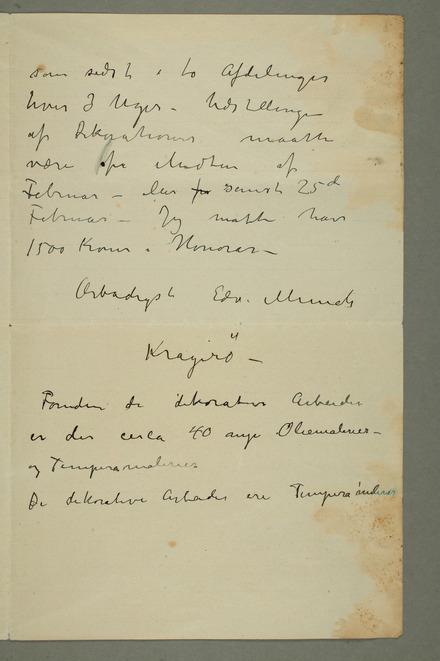 som sidst i to Afdelinger
hver 3 Uger – Udstillingen
af Dekorationer maatte
være fra Midten af
Februar – eller senest 25d
Februar – Jeg maatte have
1500 Kroner i Honorar –
Ærbødigst Edv. Munch
Kragerö –
Foruden de dekorative Arbeider
er der cirka 40 nye Oliemalerier –
og Temperamalerier
De dekorative Arbeider ere Tempera